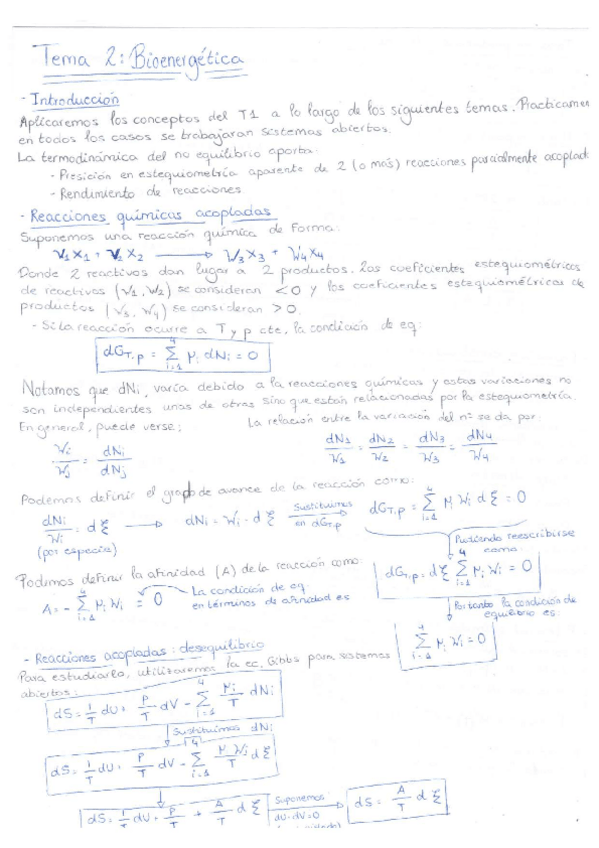 Tema 2: Bioenergética
- Introducción
Aplicaremos los conceptos del T1 a lo largo de los siguientes temas. Practicamen
en todos los casos se trabajaran sistemas abiertos.
La termodinámica del no equilibrio aporta:
- Presición en estequiometría aparente de 2 (o más) reacciones parcialmente acoplad
- Rendimiento de reacciones
- Reacciones químicas acopladas
Suponemos una reacción química de forma:
ν1 X1 + ν2 X2 → ν3 X3 + ν4 X4
Donde 2 reactivos dan lugar a 2 productos. Los coeficientes estequiométricos
de reactivos (ν1, ν2) se consideran < 0 y los coeficientes estequiométricos de
productos (ν3, ν4) se consideran > 0.
- Si la reacción ocurre a T y p cte, la condición de eq:
dG_T,p = Σ_{i=1}^{4} μi dNi = 0
Notamos que dNi, varía debido a la reacciones químicas y estas variaciones no
son independientes unas de otras sino que están relacionadas por la estequiometría.
En general, puede verse; La relación entre la variación del nº se da por:
νi/νj = dNi/dNj dN1/ν1 = dN2/ν2 = dN3/ν3 = dN4/ν4
Podemos definir el grado de avance de la reacción como:
dNi/νi = dξ → dNi = νi · dξ Sustituimos en dG_T,p dG_T,p = Σ_{i=1}^{4} μi νi dξ = 0
(por especie)
Pudiendo reescribirse
como:
dG_T,p = dξ Σ_{i=1}^{4} μi νi = 0
Podemos definir la afinidad (A) de la reacción como:
A = - Σ_{i=1}^{4} μi νi = 0 La condición de eq.
en términos de afinidad es
Por tanto la condición de
equilibrio es:
Σ_{i=1}^{4} μi νi = 0
- Reacciones acopladas: desequilibrio
Para estudiarlo, utilizaremos la ec. Gibbs para sistemas
abiertos:
dS = 1/T dU + P/T dV - Σ_{i=1}^{4} μi/T dNi
Sustituimos dNi
dS = 1/T dU + P/T dV - Σ_{i=1}^{4} μi νi/T dξ
dS = 1/T dU + P/T + A/T dξ Suponemos dU=dV=0 dS = A/T dξ